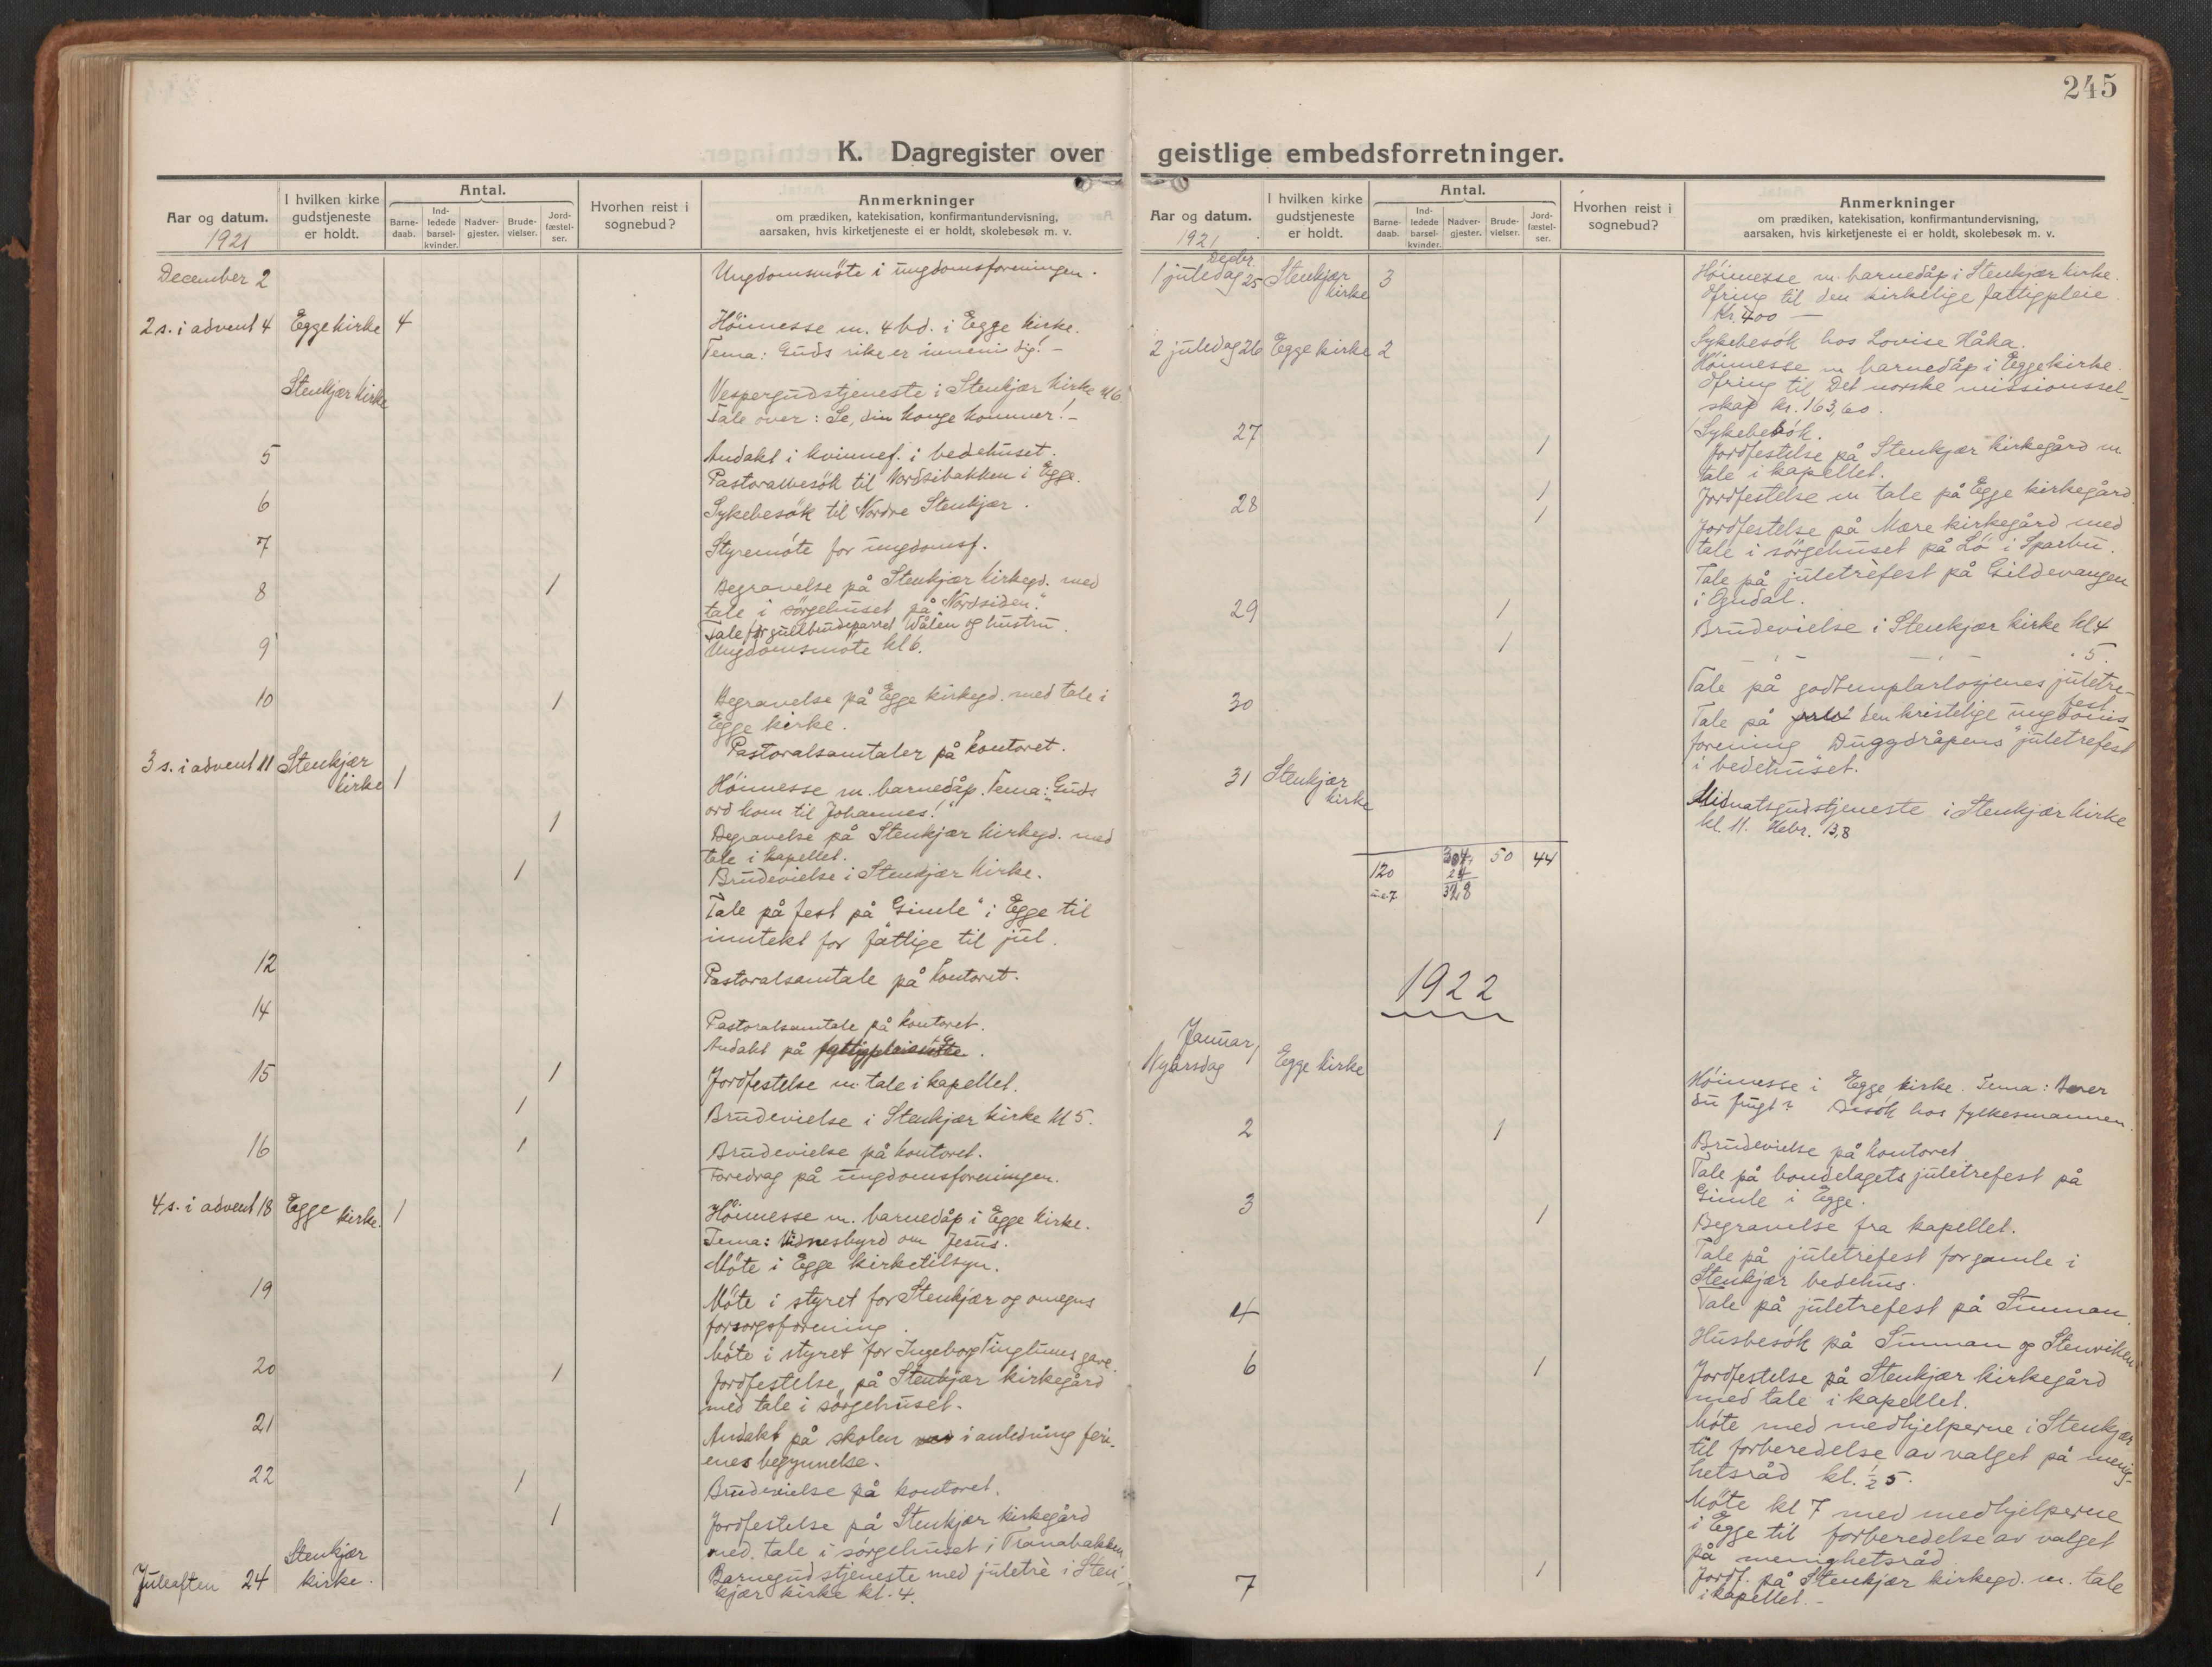 245
K. Dagregister over geistlige embedsforretninger.
Aar og datum.
1921
I hvilken kirke
gudstjeneste
er holdt.
Antal.
Barne-
daab.
Ind-
ledede
barsel-
kvinder.
Nadver-
gjester.
Brude-
vielser.
Jord-
fæstel-
ser.
Hvorhen reist i
sognebud?
Anmerkninger
om prædiken, katekisation, konfirmantundervisning,
aarsaken, hvis kirketjeneste ei er holdt, skolebesøk m. v.
December 2 Ungdomsmöte i ungdomsforeningen.
2 s. i advent 4 Egge kirke 4 Höimesse m. 4 bd. i Egge kirke.
Tema: Guds rike er inneni dig! -
Stenkjær kirke Vespergudstjeneste i Stenkjær kirke kl 6.
Tale over: Se, din konge kommer! -
5 Andakt i kvinnef. i bedehuset.
Pastoralbesök til Nordsibakken i Egge.
6 Sykebesök til Nordre Stenkjær.
7 Styremöte for ungdomsf.
8 1 Begravelse på Stenkjær kirkegd. med
tale i sörgehuset på "Nordsiden".
Tale for gullbrudeparret Wålen og hustru.
9 Ungdomsmöte kl 6.
10 1 Begravelse på Egge kirkegd. med tale i
Egge kirke.
Pastoralsamtaler på kontoret.
3 s. i advent 11 Stenkjær
kirke 1 Höimesse m. barnedåp. Tema: "Guds
ord kom til Johannes!"
1 Begravelse på Stenkjær kirkegd. med
tale i kapellet.
1 Brudevielse i Stenkjær kirke.
Tale på fest på "Gimle" i Egge til
inntekt for fattige til jul.
12 Pastoralsamtale på kontoret.
14 Pastoralsamtale på kontoret.
Andakt på fattigpleiemöte.
15 1 Jordfestelse m. tale i kapellet.
1 Brudevielse i Stenkjær kirke kl 5.
16 1 Brudevielse på kontoret.
Foredrag på ungdomsforeningen.
4 s. i advent 18 Egge kirke. 1 Höimesse m. barnedåp i Egge kirke.
Tema: Vidnesbyrd om Jesus.
Möte i Egge kirketilsyn.
19 Möte i styret for Stenkjær og omegns
forsorgsforening.
Möte i styret for Ingeborg Tinghuus gave.
20 1 Jordfestelse, på Stenkjær kirkegård
med tale i sörgehuset.
21 Andakt på skolen i anledning feri-
enes begynnelse.
22 1 Brudevielse på kontoret.
1 Jordfestelse på Stenkjær kirkegård
med tale i sörgehuset i Tranabakken
Juleaften 24 Stenkjær
kirke. Barnegudstjeneste med juletrè i Sten-
kjær kirke kl. 4.
Aar og datum.
1921
I hvilken kirke
gudstjeneste
er holdt.
Antal.
Barne-
daab.
Ind-
ledede
barsel-
kvinder.
Nadver-
gjester.
Brude-
vielser.
Jord-
fæstel-
ser.
Hvorhen reist i
sognebud?
Anmerkninger
om prædiken, katekisation, konfirmantundervisning,
aarsaken, hvis kirketjeneste ei er holdt, skolebesøk m. v.
Decbr.
1 juledag 25 Stenkjær
kirke 3 Höimesse m. barnedåp i Stenkjær kirke.
Ofring til den kirkelige fattigpleie
Kr. 400 -
Sykebesök hos Lovise Håka.
2 juledag 26 Egge kirke 2 Höimesse m barnedåp i Egge kirke.
Ofring til Det norske missionssel-
skap kr. 163,60.
Sykebesök.
27 1 Jordfestelse på Stenkjær kirkegård m.
tale i kapellet.
28 1 Jordfestelse m tale på Egge kirkegård.
1 Jordfestelse på Mære kirkegård med
tale i sörgehuset på Lö i Sparbu.
Tale på juletrèfest på Gildevangen
i Ogndal.
29 1 Brudevielse i Stenkjær kirke kl 4
1 - - - - . 5.
Tale på godtemplarlosjenes juletre-
fest
30 Tale på den kristelige ungdoms-
forening "Duggdråpens" juletrefest
i bedehuset.
31 Stenkjær
kirke Midnatsgudstjeneste i Stenkjær kirke
kl. 11. Hebr. 13,8
120 304 50 44
24
328
1922
Januar
Nyårsdag 1 Egge kirke Höimesse i Egge kirke. Tema: Bærer
du frugt? Besök hos fylkesmannen.
2 1 Brudevielse på kontoret
Tale på bondelagets juletrefest på
Gimle i Egge.
3 1 Begravelse fra kapellet.
Tale på juletrefest for gamle i
Stenkjær bedehus.
4 Tale på juletrefest på Sunnan.
Husbesök på Sunnan og Stenviken
6 1 Jordfestelse på Stenkjær kirkegård
med tale i kapellet.
Möte med medhjelperne i Stenkjær
til forberedelse av valget på menig-
hetsråd kl. ½ 5.
Möte kl 7 med medhjelperne
i Egge til forberedelse av valget
på menighetsråd
7 1 Jordf. på Stenkjær kirkegd. m. tale
i kapellet. -